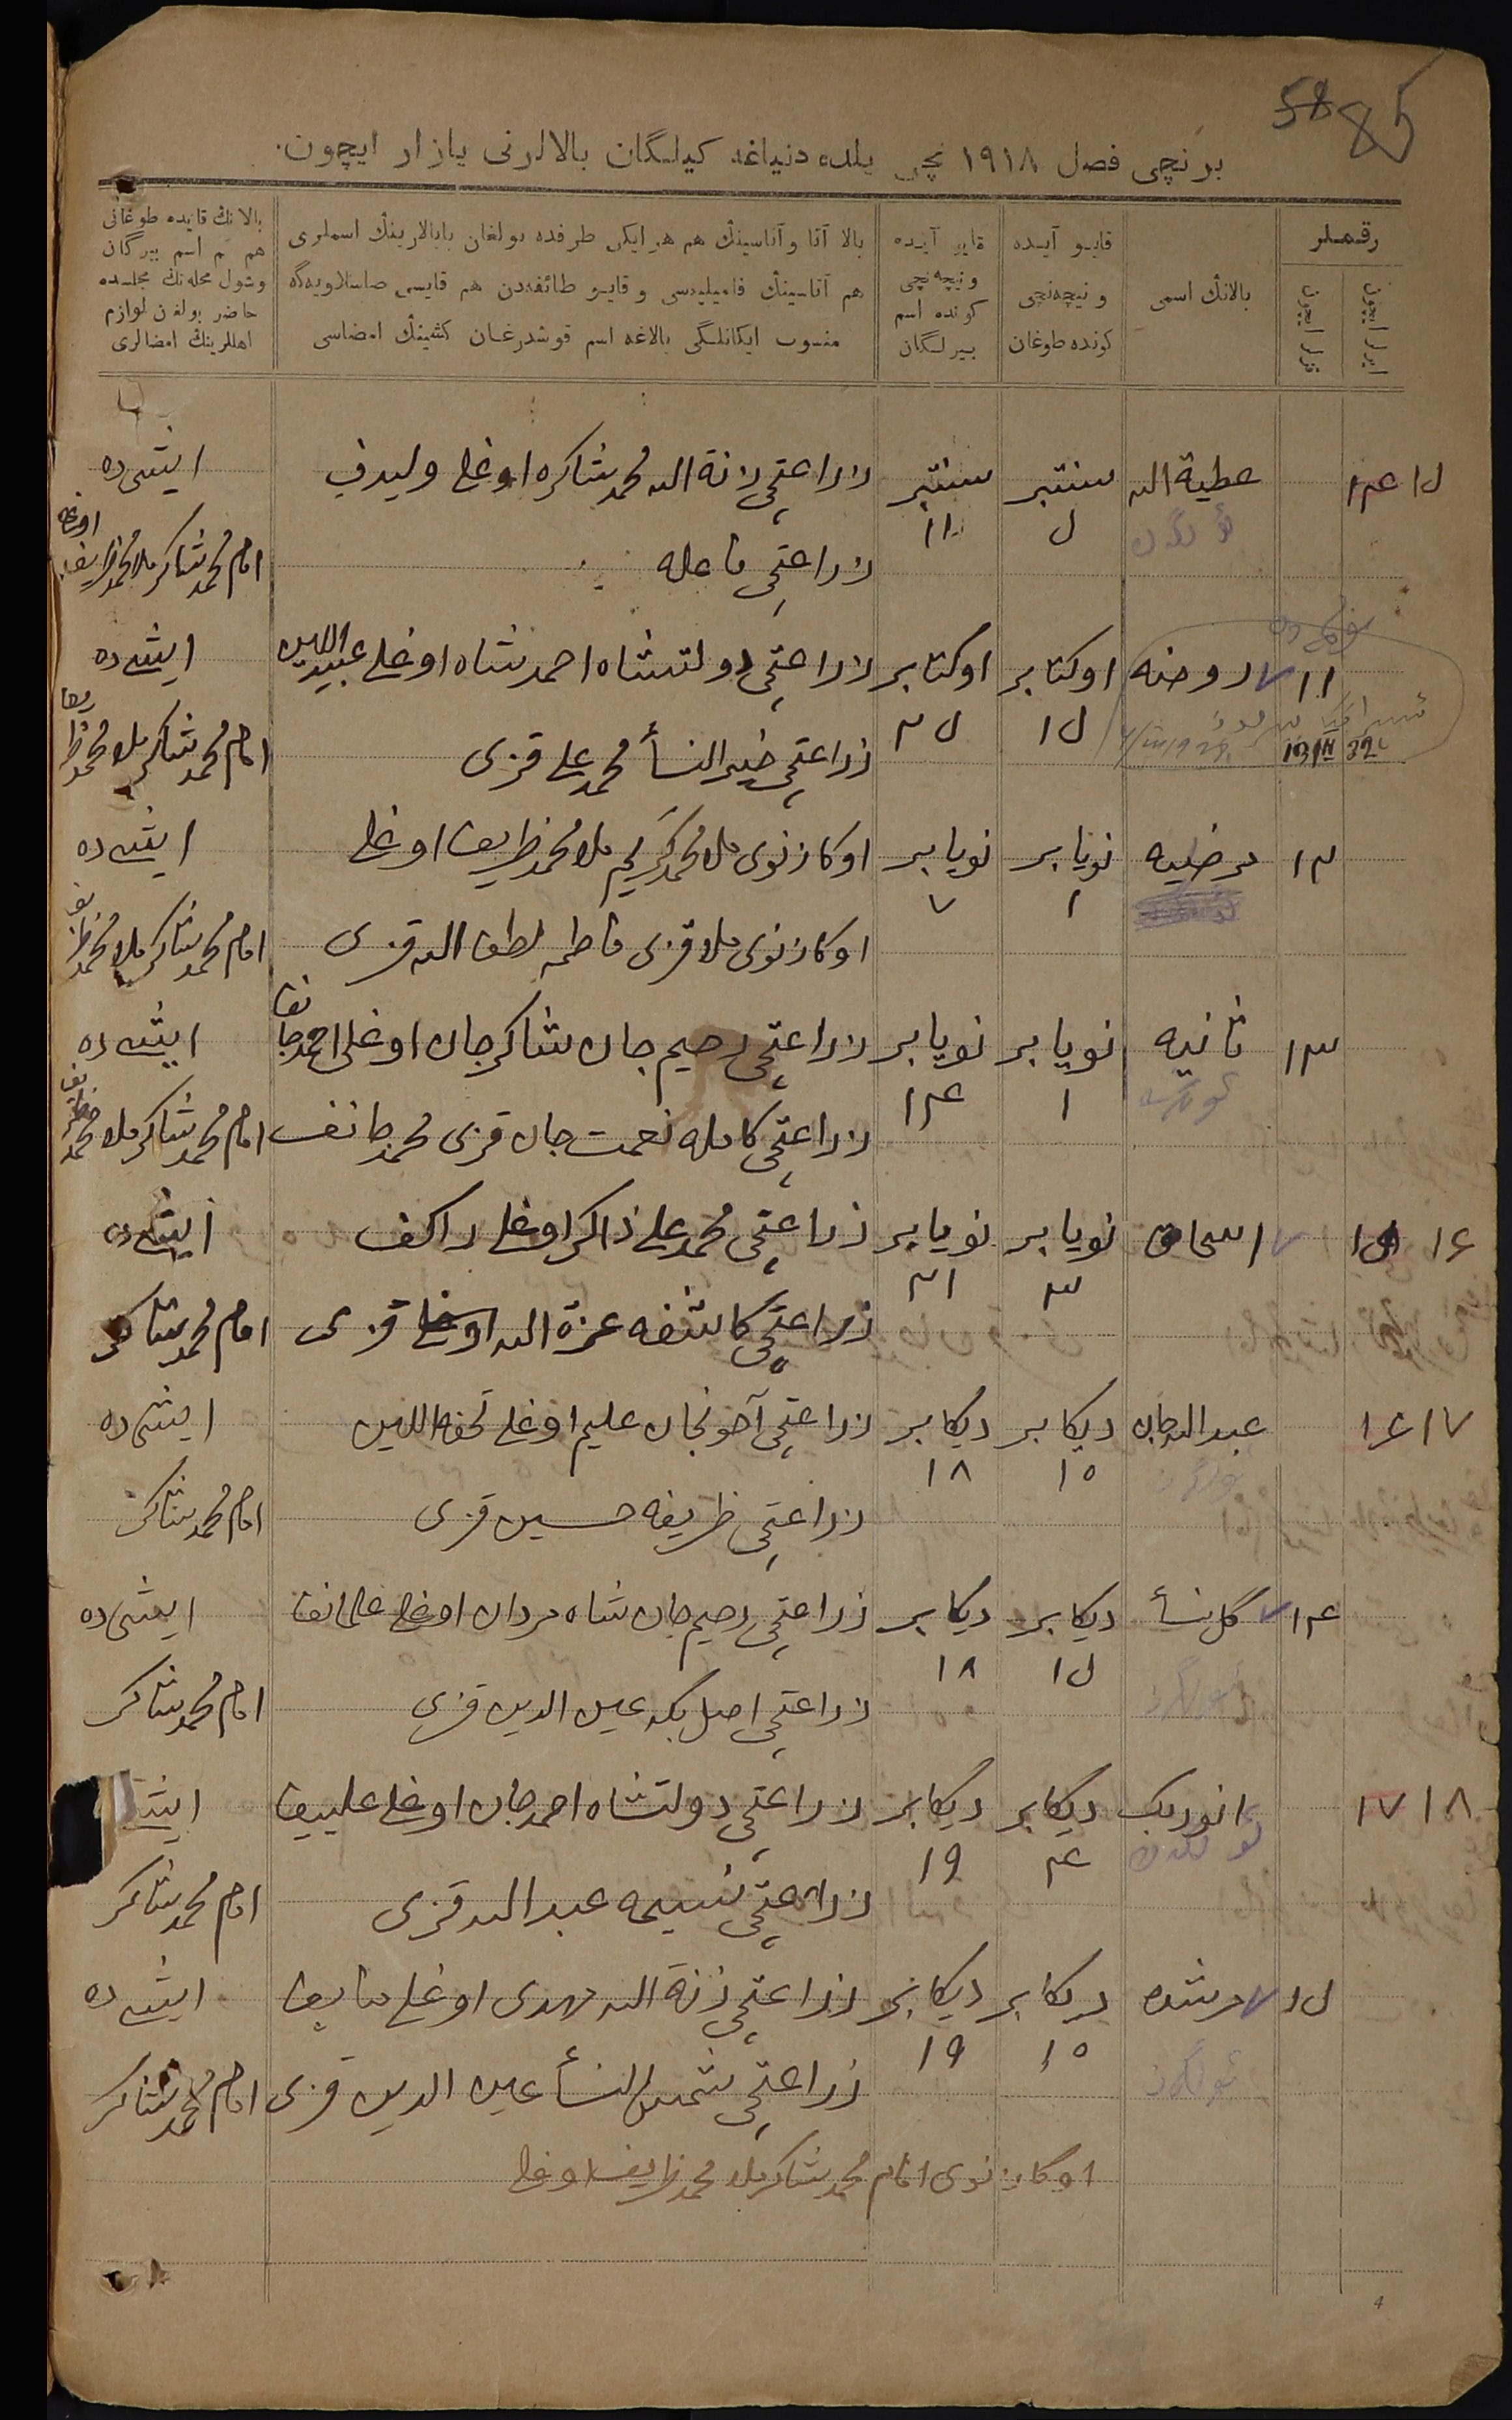 58 85
برنچی فصل ۱۹۱۸ نچی یلده دنیاغه کیلگان بالالرنی یازار ایچون.
رقملر
ایرلر ایچون
قزلر ایچون
بالانڭ اسمی
قایو آیده و نیچه‌نچی کونده طوغان
قایو آیده و نیچه‌نچی کونده اسم بیرلگان
بالا آتا و آناسینڭ هم هر ایکی طرفده بولغان بابالارینڭ اسملری
هم آناسینڭ فامیلیه‌سی و قایو طائفه‌دن هم قایسی صاسلاویه‌گه
منسوب ایکانلگی بالاغه اسم قوشدرغان کشینڭ امضاسی
بالانڭ قایده طوغانی
هم اسم بیرگان
وشول محله‌نڭ مجلسده
حاضر بولغن لوازم
اهللرینڭ امضالری
۱۵ ۱۴ عطیة الله سنتبر ۵ سنتبر ۱۱ زراعتچی زنة الله محمد شاکره اوغلی ولیدف ایشی ده
زراعتچی فاعله امام محمد شاکر ملا محمد ظریف اوغلی
۱۱ روضه اوکتابر ۱۵ اوکتابر ۲۵ زراعتچی دولتشاه احمدشاه اوغلی عبیداللین ایشی ده
زراعتچی خیرالنسأ محمد علی قزی امام محمد شاکر ملا محمد ظریف
۱۲ مرضیه نویابر ۱ نویابر ۷ اوکازنوی ملا محمد کریم ملا محمد ظریف اوغلی ایشی ده
اوکازنوی ملا قزی فاطمه لطف الله قزی امام محمد شاکر ملا محمد ظریف
۱۳ ثانیه نویابر ۱ نویابر ۱۴ زراعتچی رحیم جان شاکرجان اوغلی احمدجانف ایشی ده
زراعتچی کامله نعمت جان قزی محمدجانف امام محمد شاکر ملا محمد ظریف
۱۶ ۱۵ اسحاق نویابر ۳ نویابر ۲۱ زراعتچی محمد علی ذاکر اوغلی راکف ایشی ده
زراعتچی کاشفه عزة الله قزی امام محمد شاکر
۱۷ ۱۶ عبدالله جان دیکابر ۱۵ دیکابر ۱۸ زراعتچی آخونجان علیم اوغلی ایشی ده
زراعتچی ظریفه حسین قزی امام محمد شاکر
۱۴ گل نسأ دیکابر ۱۵ دیکابر ۱۸ زراعتچی رحیم جان شاه مردان اوغلی ایشی ده
زراعتچی اصل بکه عین الدین قزی امام محمد شاکر
۱۸ ۱۷ انوربک دیکابر ۴ دیکابر ۱۹ زراعتچی دولتشاه احمدجان اوغلی علییف
زراعتچی نسیمه عبدالله قزی امام محمد شاکر
۱۵ مرشده دیکابر ۱۵ دیکابر ۱۹ زراعتچی زنة الله مهدی اوغلی ایشی ده
زراعتچی شمس النسأ عین الدین قزی امام محمد شاکر
اوکازنوی امام محمد شاکر ملا محمد ظریف اوغلی
4